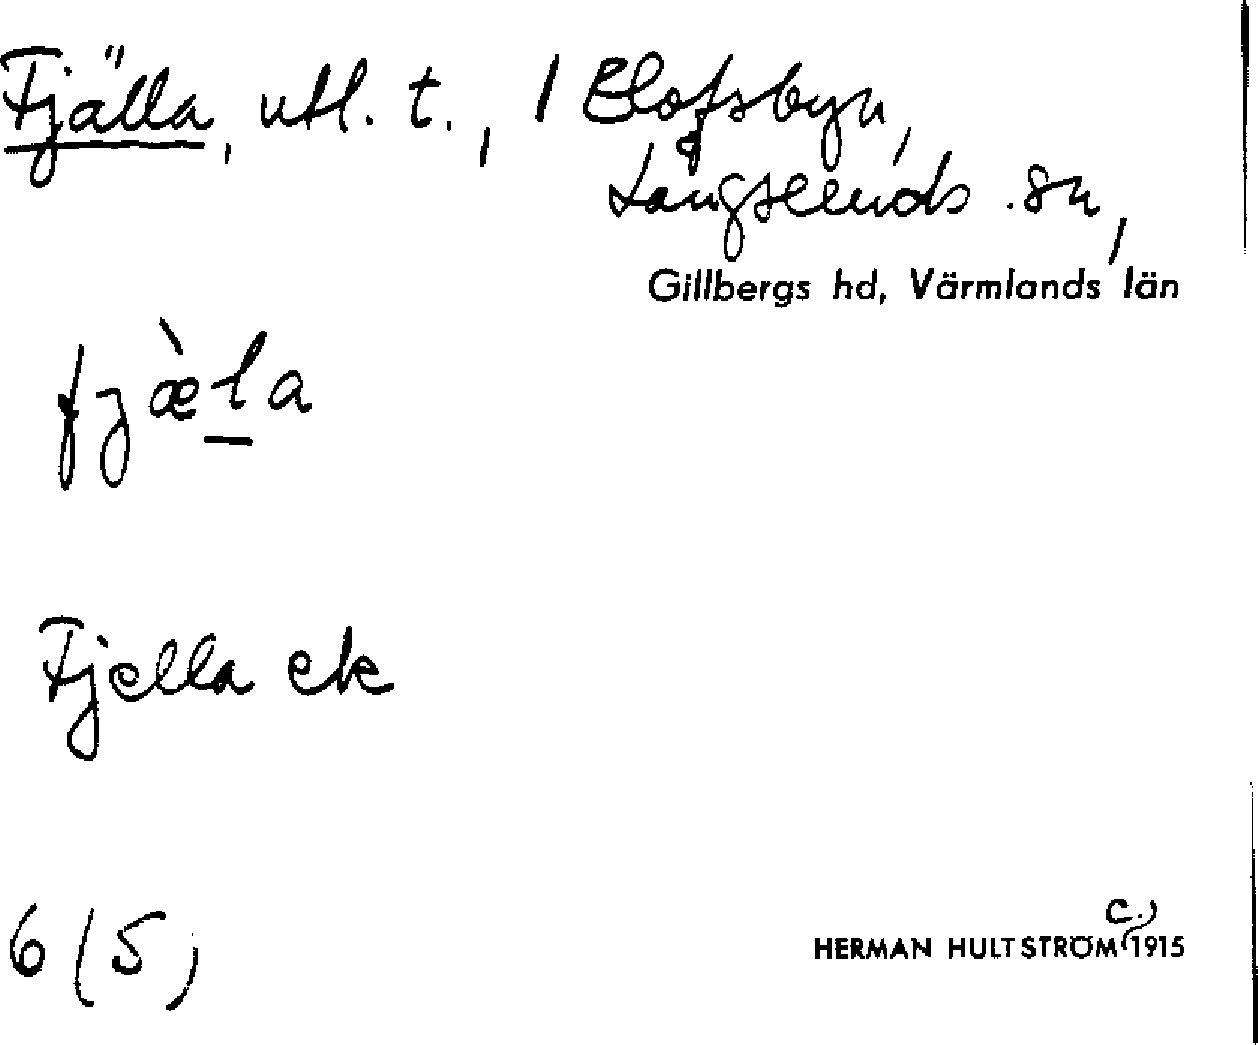 Fjälla, utl. t., i Elofsbyn,
Långseruds sn,
Gillbergs hd, Värmlands län
fjæ̀la
Fjella ek
6 (5)
HERMAN HULTSTRÖM c., 1915